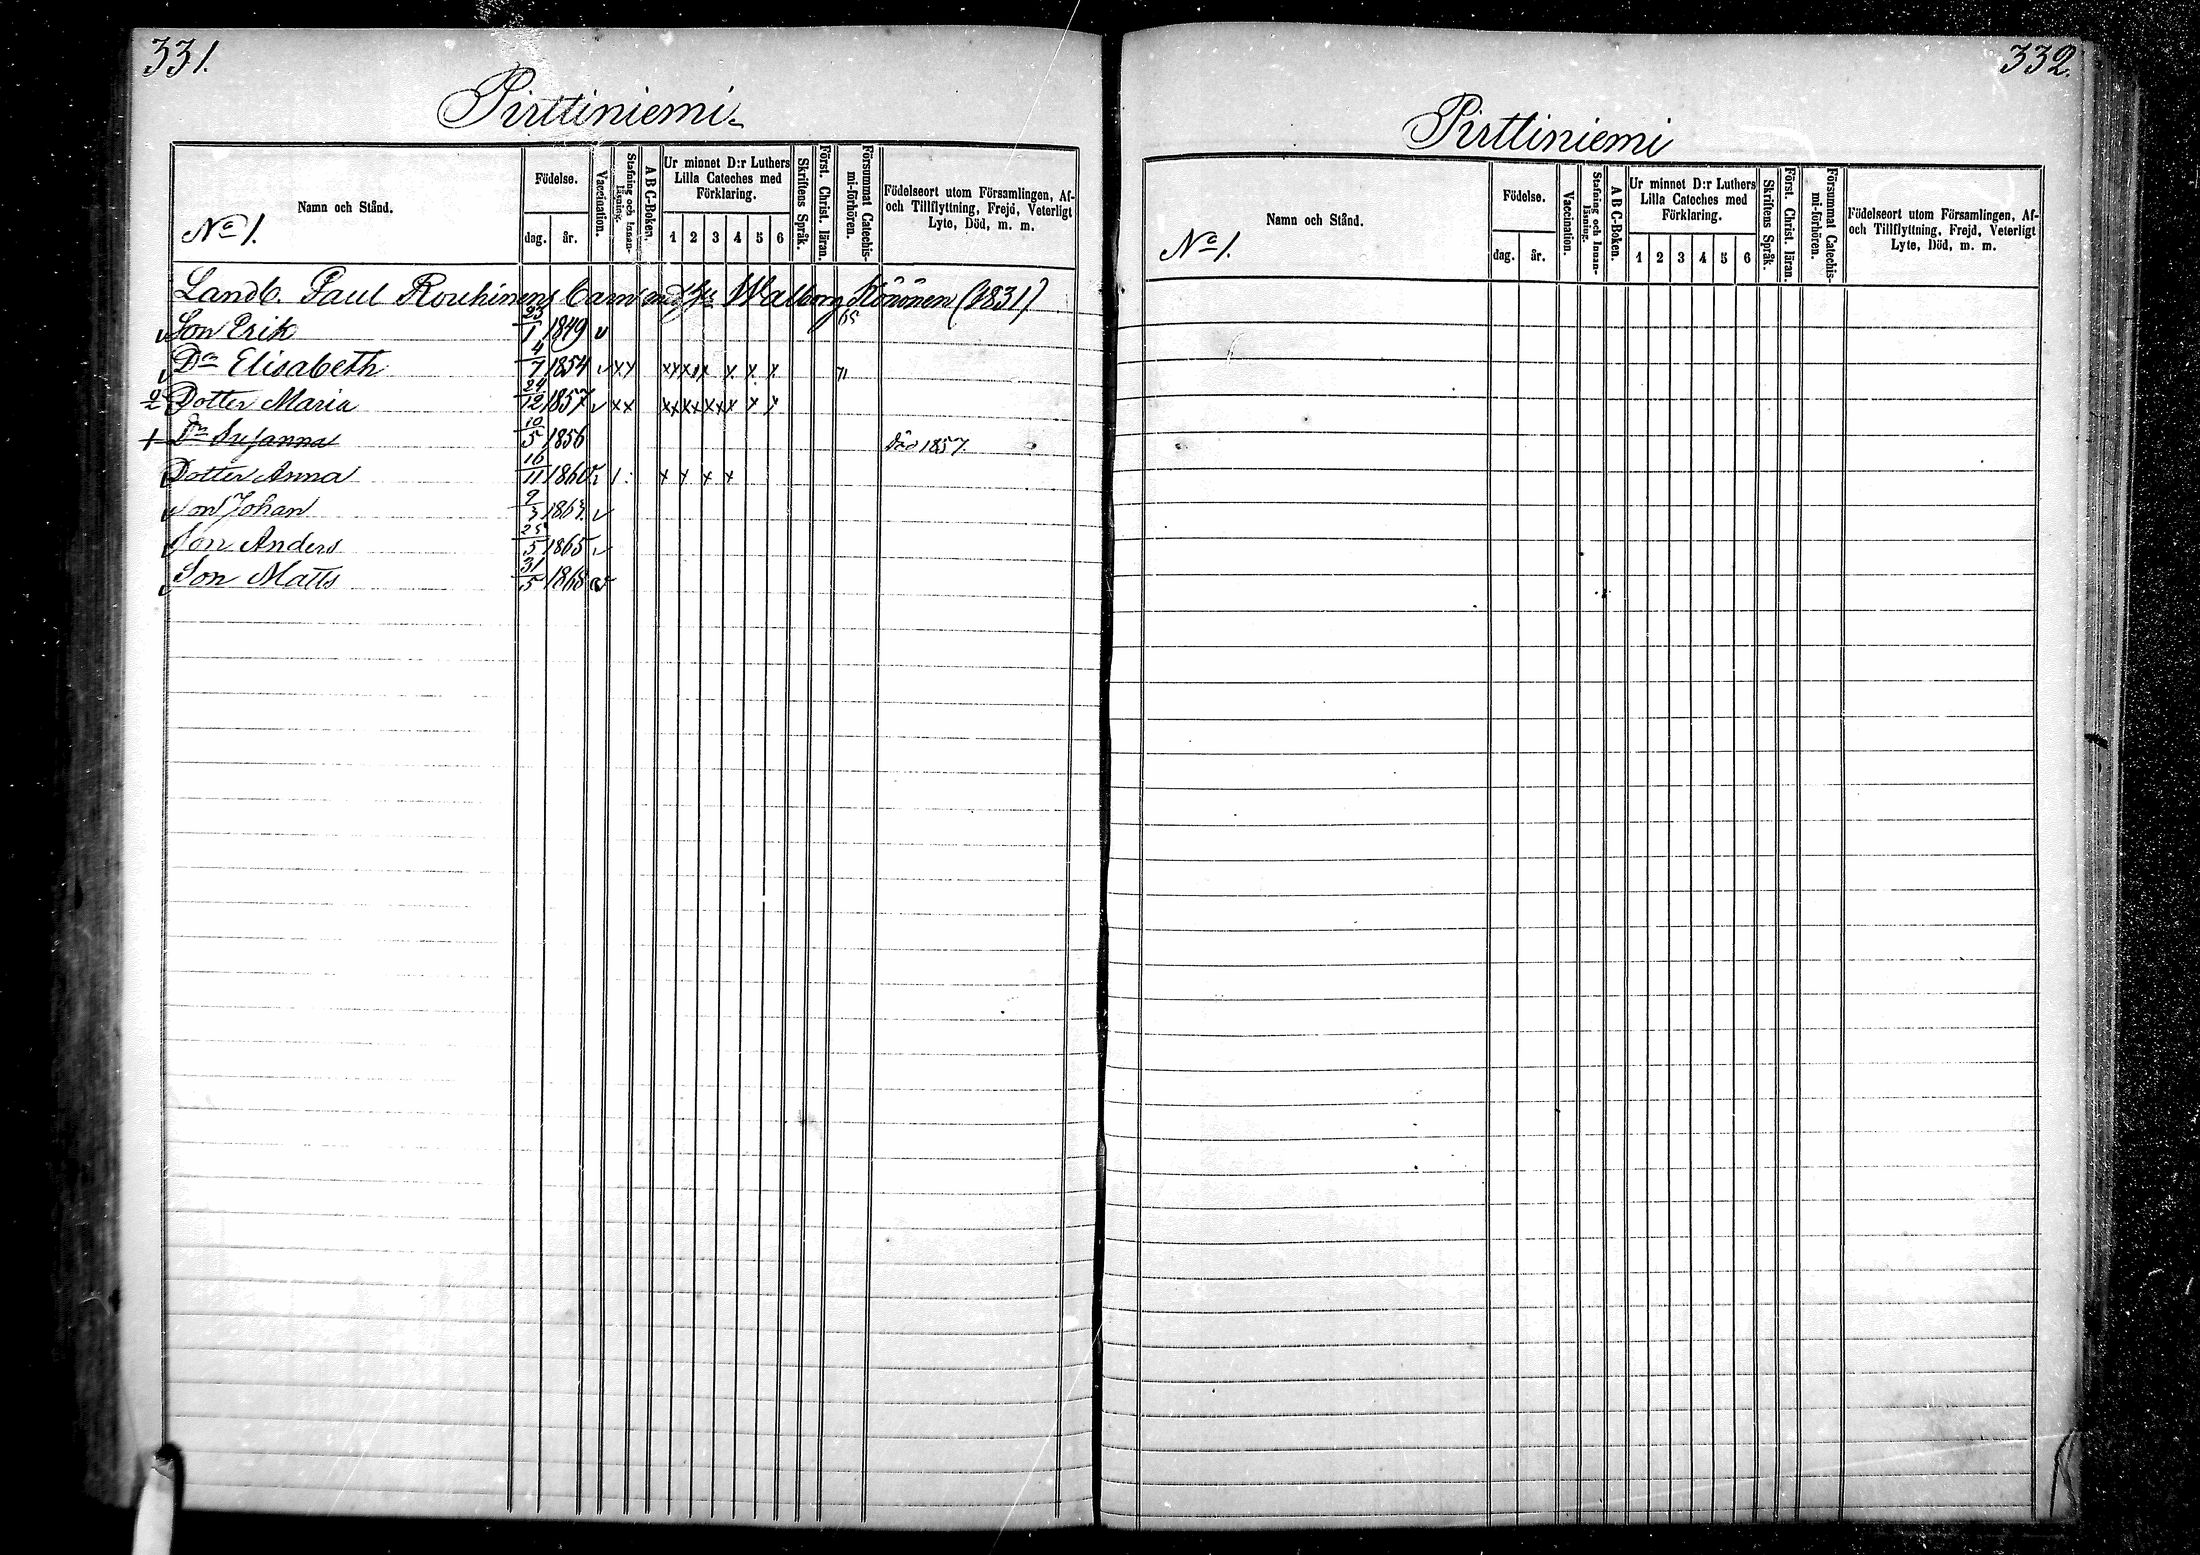 331.
Pirttiniemi.
Namn och Stånd.
No 1.
Födelse.
dag. år.
Vaccination.
Stafning och Innan-läsning.
A B C-Boken.
Ur minnet D:r Luthers
Lilla Cateches med
Förklaring.
1 2 3 4 5 6
Skriftens Språk.
Först. Christ. läran.
Försummat Catechis-
mi-förhören.
Födelseort utom Församlingen, Af-
och Tillflyttning, Frejd, Veterligt
Lyte, Död, m. m.
Landb. Paul Rouhinens barn med Walborg Könönen (331)
v Son Erik 23/1 1849 v 65
v Dr Elisabeth 4/7 1854 v x x xx xx x x x x 71
Dotter Maria 24/12 1857 v x x xx xx xx x x x
+ Dr Susanna 10/5 1856 Död 1857.
v Dotter Anna 16/11 1860 x x x x
v Son Johan 9/3 v
v Son Anders 25/5 1865 v
v Son Matts 31/5 1868 v
332.
Pirttiniemi
Namn och Stånd.
No 1.
Födelse.
dag. år.
Vaccination.
Stafning och Innan-läsning.
A B C-Boken.
Ur minnet D:r Luthers
Lilla Cateches med
Förklaring.
1 2 3 4 5 6
Skriftens Språk.
Först. Christ. läran.
Försummat Catechis-
mi-förhören.
Födelseort utom Församlingen, Af-
och Tillflyttning, Frejd, Veterligt
Lyte, Död, m. m.